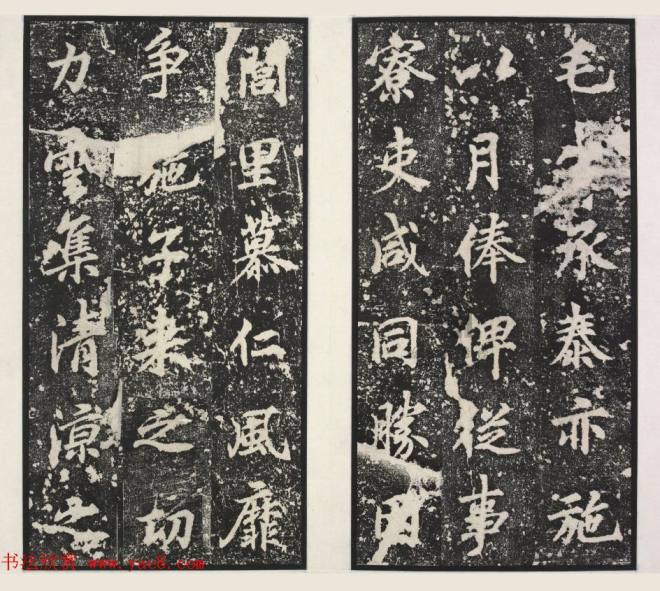 毛永泰亦施
以月俸俾從事
寮吏咸同勝因
閭里慕仁風靡
争施子来之功
力雲集清涼之
书法欣赏 www.yac8.com